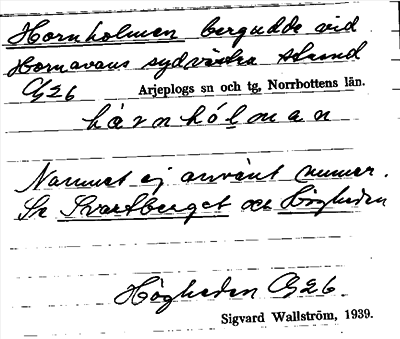 Hornholmen bergudde vid
Hornavans sydvästra strand
G26 Arjeplogs sn och tg, Norrbottens län.
hὰrnhólman
Namnet ej använt numer.
Se Svartberget och Högheden
Högheden G26.
Sigvard Wallström, 1939.